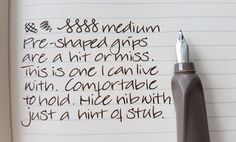 medium
Pre-shaped grips
are a hit or miss.
This is one I can live
with. Comfortable
to hold. Nice nib with
just a hint of stub.